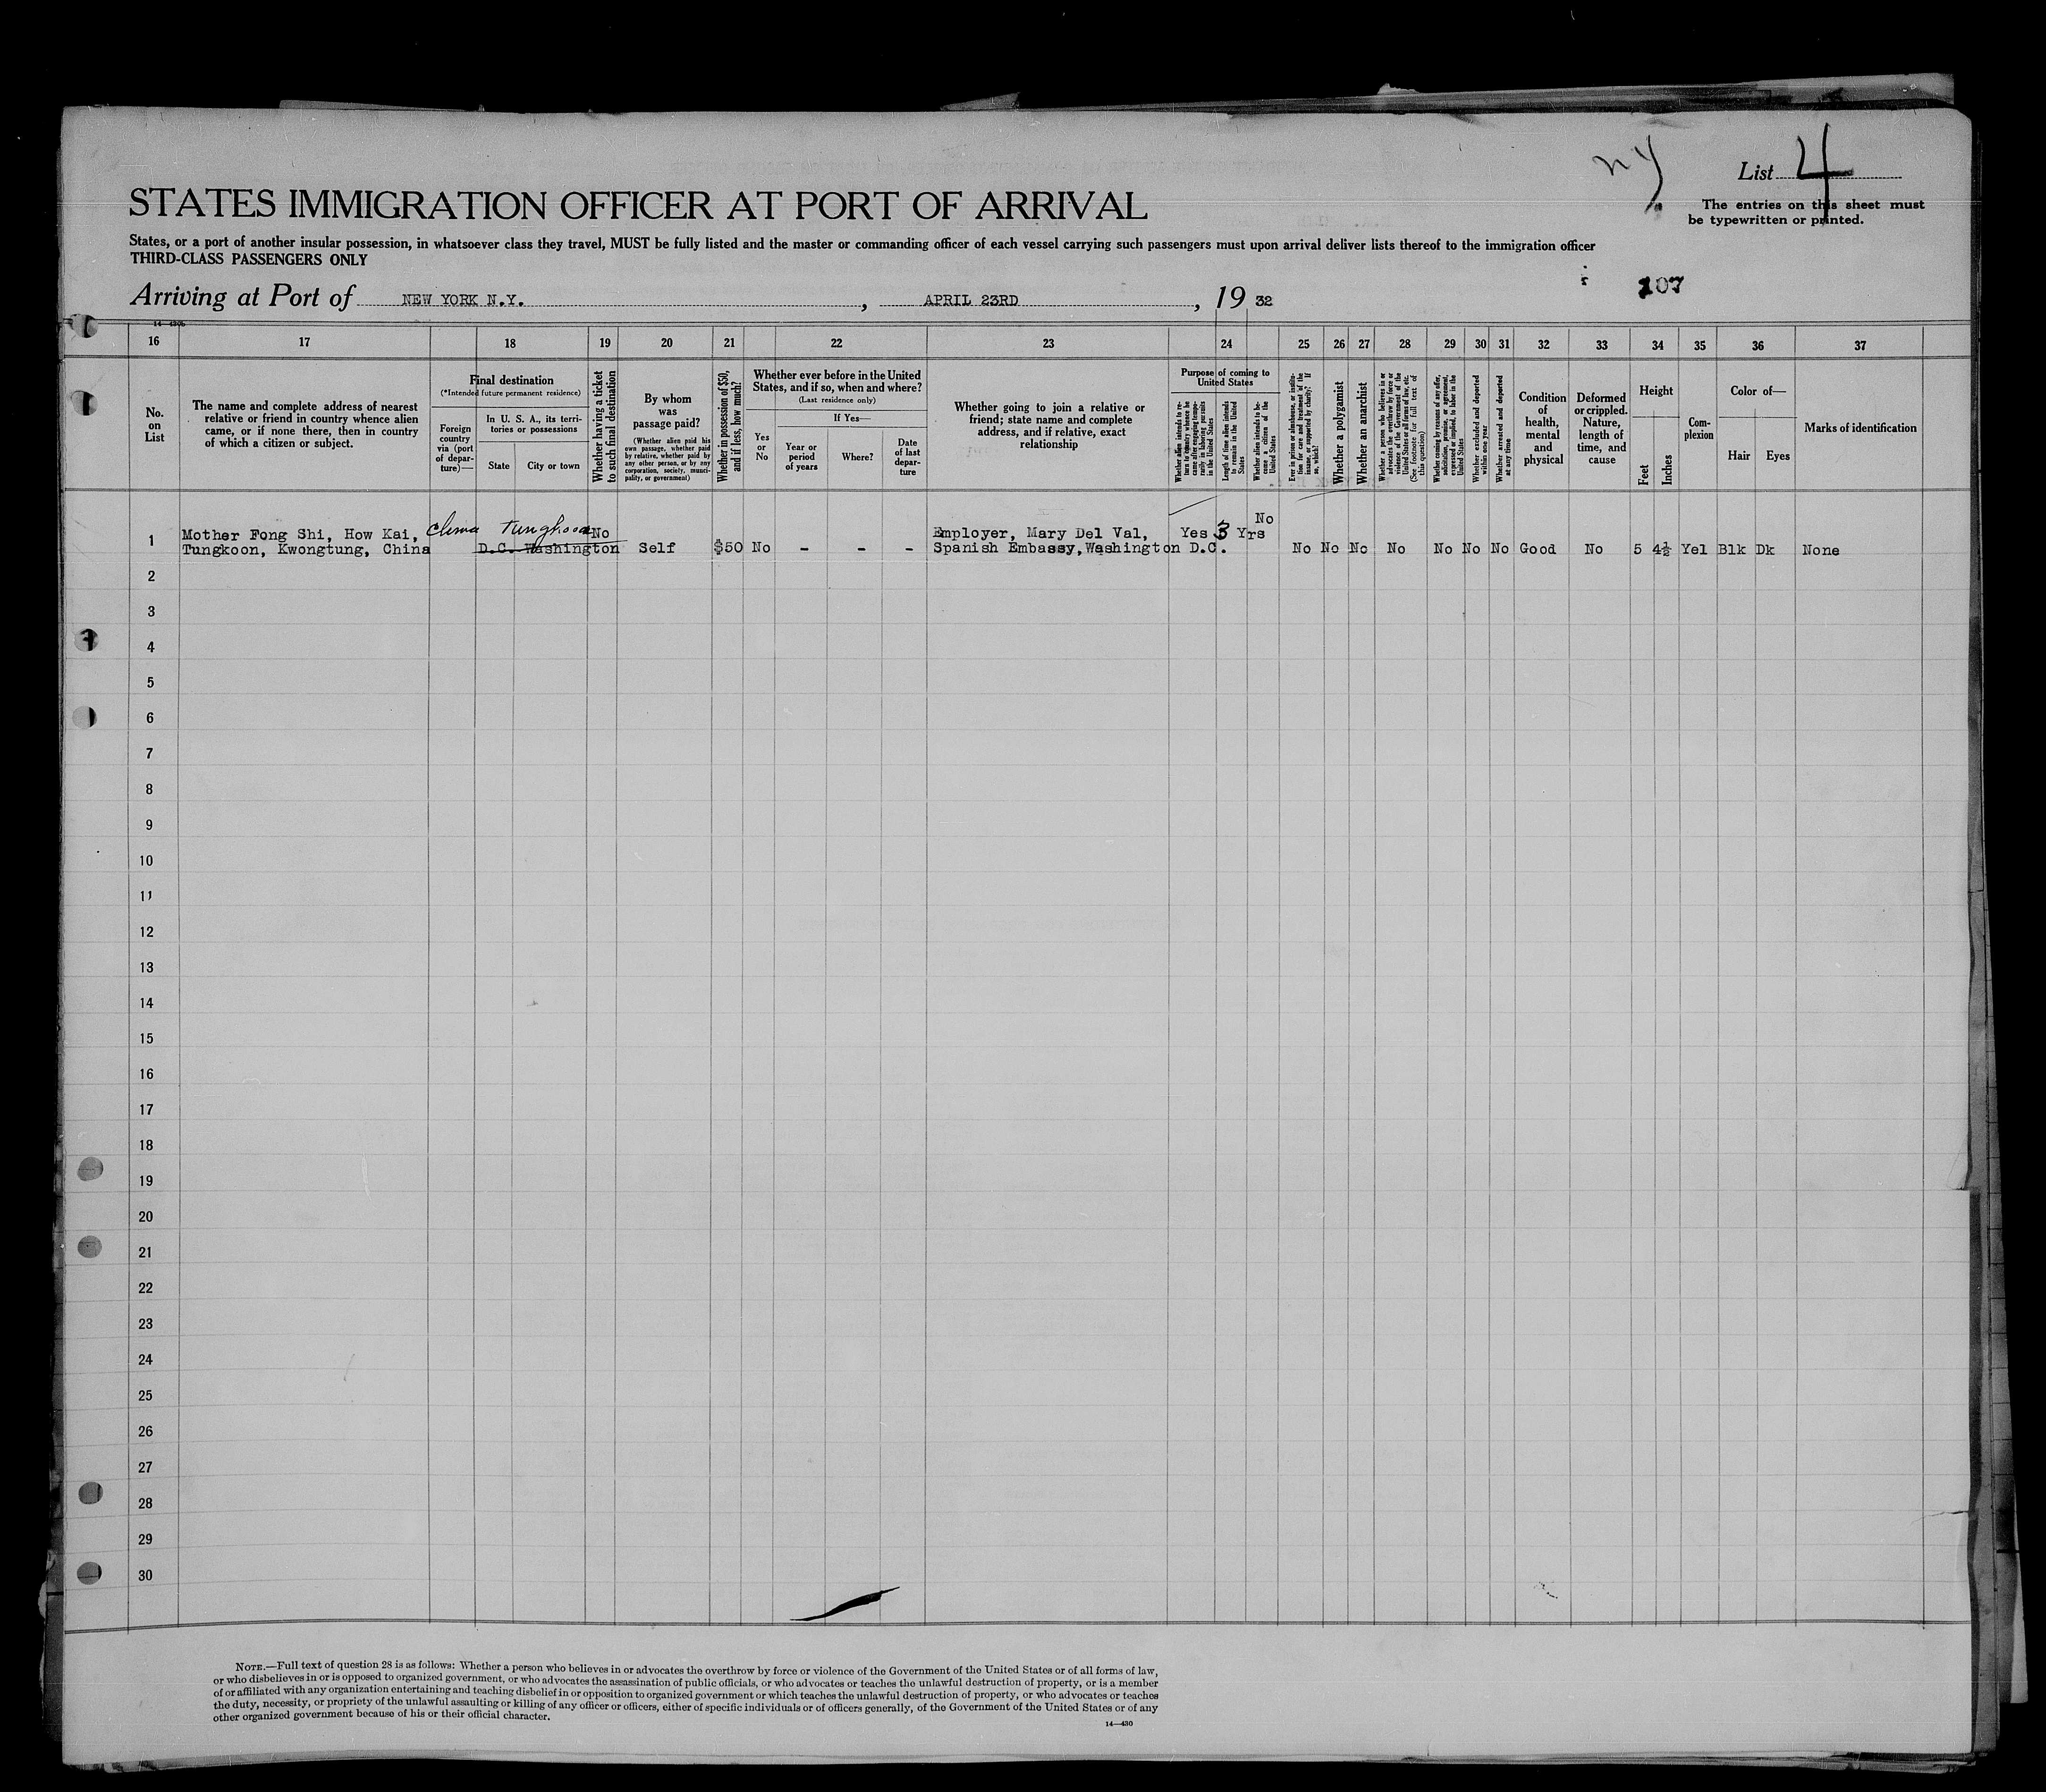 ny
List 4
The entries on this sheet must
be typewritten or printed.
STATES IMMIGRATION OFFICER AT PORT OF ARRIVAL
States, or a port of another insular possession, in whatsoever class they travel, MUST be fully listed and the master or commanding officer of each vessel carrying such passengers must upon arrival deliver lists thereof to the immigration officer
THIRD-CLASS PASSENGERS ONLY
107
Arriving at Port of NEW YORK N.Y. , APRIL 23RD , 19 32
16 17 18 19 20 21 22 23 24 25 26 27 28 29 30 31 32 33 34 35 36 37
No.
on
List
The name and complete address of nearest
relative or friend in country whence alien
came, or if none there, then in country
of which a citizen or subject.
Final destination
(*Intended future permanent residence)
Foreign
country
via (port
of depar-
ture)—
In U. S. A., its terri-
tories or possessions
State
City or town
Whether having a ticket
to such final destination
By whom
was
passage paid?
(Whether alien paid his
own passage, whether paid
by relative, whether paid by
any other person, or by any
corporation, society, munici-
pality, or government)
Whether in possession of $50,
and if less, how much?
Whether ever before in the United
States, and if so, when and where?
(Last residence only)
Yes
or
No
If Yes—
Year or
period
of years
Where?
Date
of last
depar-
ture
Whether going to join a relative or
friend; state name and complete
address, and if relative, exact
relationship
Purpose of coming to
United States
Whether alien intends to re-
turn to country whence he
came after engaging tempo-
rarily in laboring pursuits
in the United States
Length of time alien intends
to remain in the United
States
Whether alien intends to be-
come a citizen of the
United States
Ever in prison or almshouse, or institu-
tion for care and treatment of the
insane, or supported by charity? If
so, which?
Whether a polygamist
Whether an anarchist
Whether a person who believes in or
advocates the overthrow by force or
violence of the Government of the
United States or all forms of law, etc.
(See footnote for full text of
this question)
Whether coming by reasons of any offer,
solicitation, promise, or agreement,
expressed or implied, to labor in the
United States
Whether excluded and deported
within one year
Whether arrested and deported
at any time
Condition
of
health,
mental
and
physical
Deformed
or crippled.
Nature,
length of
time, and
cause
Height
Feet
Inches
Com-
plexion
Color of—
Hair
Eyes
Marks of identification
No
Mother Fong Shi, How Kai, No Employer, Mary Del Val, Yes 3 Yrs
1 Tungkoon, Kwongtung, China D.C. Washington Self $50 No - - - Spanish Embassy, Washington D.C. No No No No No No No Good No 5 4½ Yel Blk Dk None
2
3
4
5
6
7
8
9
10
11
12
13
14
15
16
17
18
19
20
21
22
23
24
25
26
27
28
29
30
NOTE.—Full text of question 28 is as follows: Whether a person who believes in or advocates the overthrow by force or violence of the Government of the United States or of all forms of law,
or who disbelieves in or is opposed to organized government, or who advocates the assassination of public officials, or who advocates or teaches the unlawful destruction of property, or is a member
of or affiliated with any organization entertaining and teaching disbelief in or opposition to organized government or which teaches the unlawful destruction of property, or who advocates or teaches
the duty, necessity, or propriety of the unlawful assaulting or killing of any officer or officers, either of specific individuals or of officers generally, of the Government of the United States or of any
other organized government because of his or their official character.
14—430